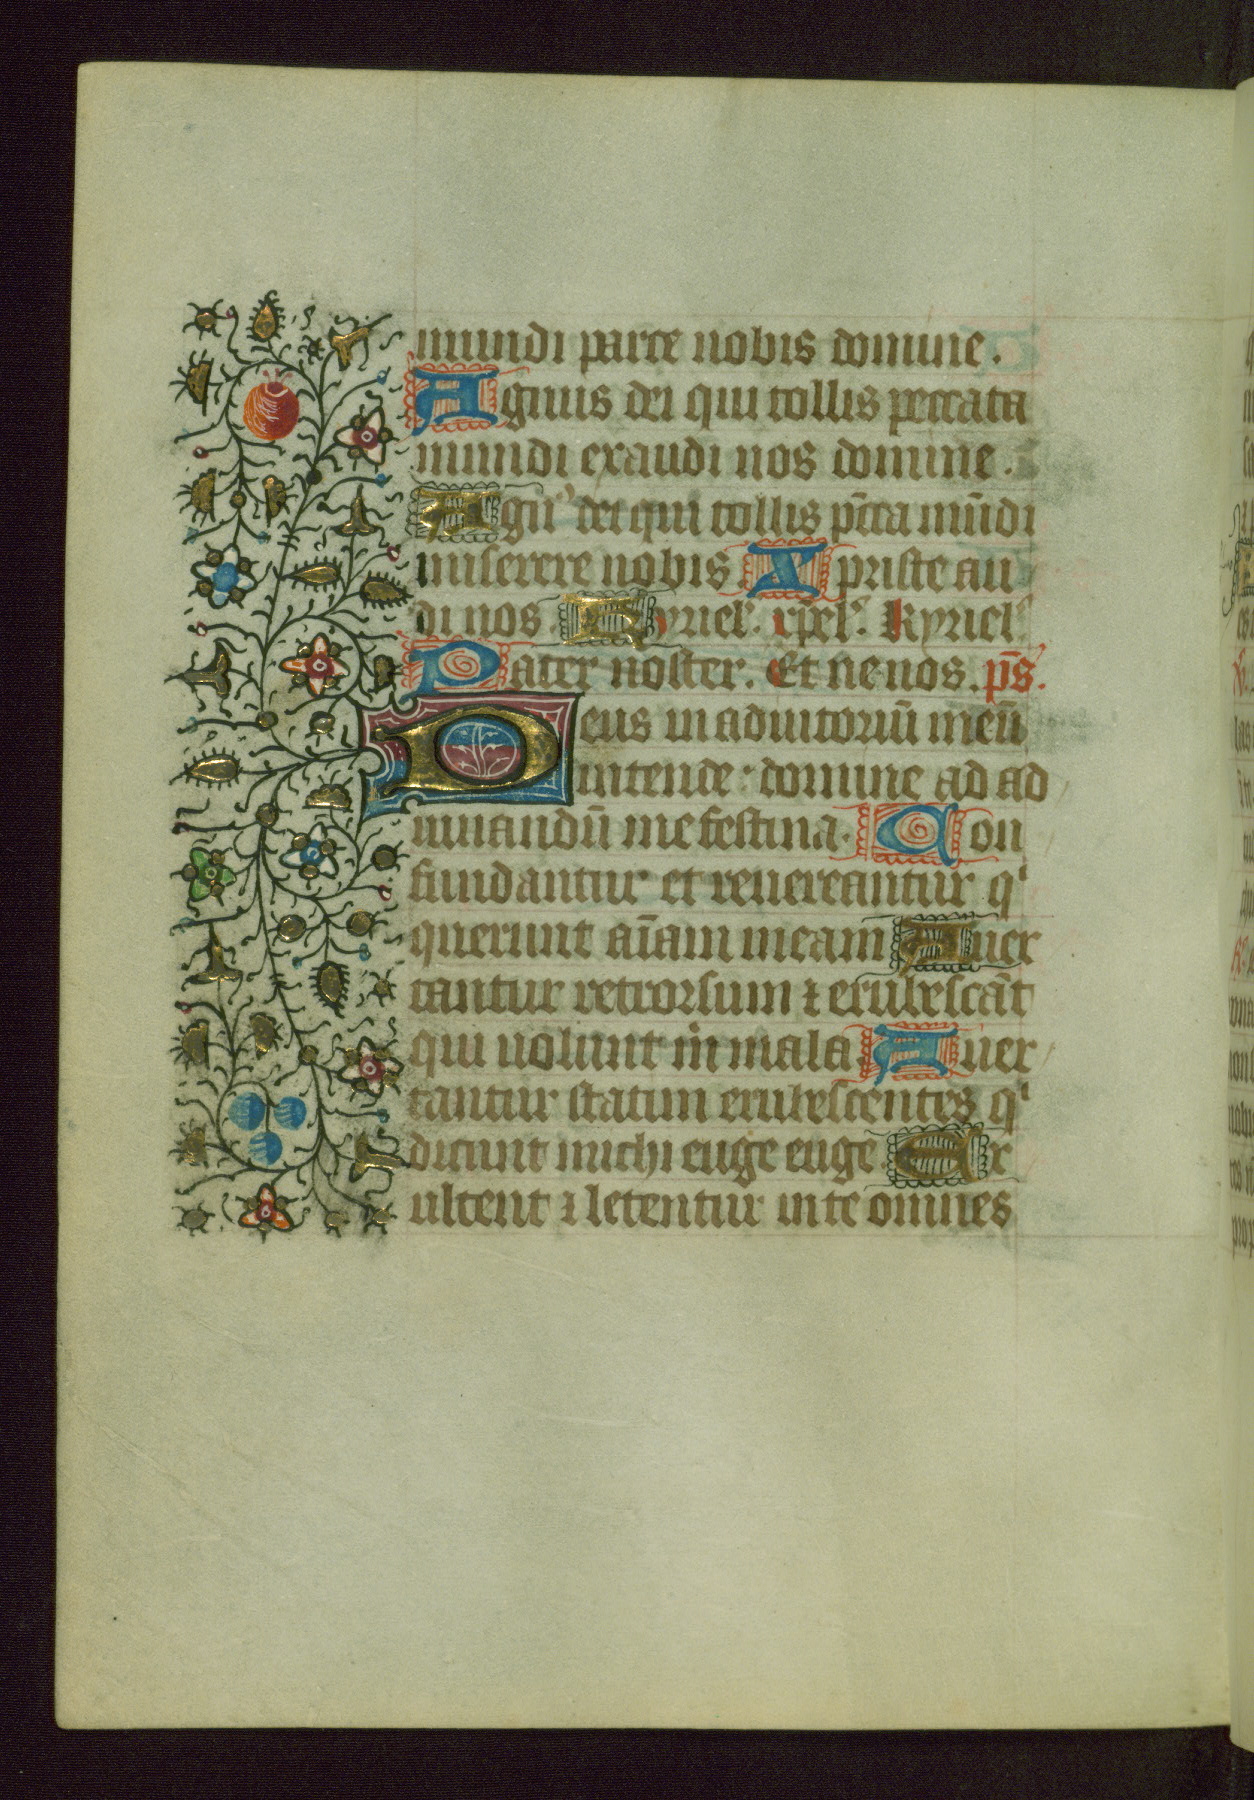 mundi parce nobis domine.
Agnus dei qui tollis peccata
mundi exaudi nos domine.
Agn᷒ dei qui tollis pc̄ta mūdi
miserere nobis. Xpriste au
di nos Kyriel᷒. xp̄el᷒. Kyriel᷒
Pater noster. Et ne nos. p̄s.
Deus in adiutoriū meū
intende: domine ad ad
iuuandū me festina. Con
fundantur et reuereantur qͥ
querunt aīam meam Auer
tantur retrorsum ⁊ erubescāt
qui uolunt mͥ mala. Auer
tantur statim erubescentes qͥ
dicunt michi euge euge. Ex
ultent ⁊ letentur in te omnes